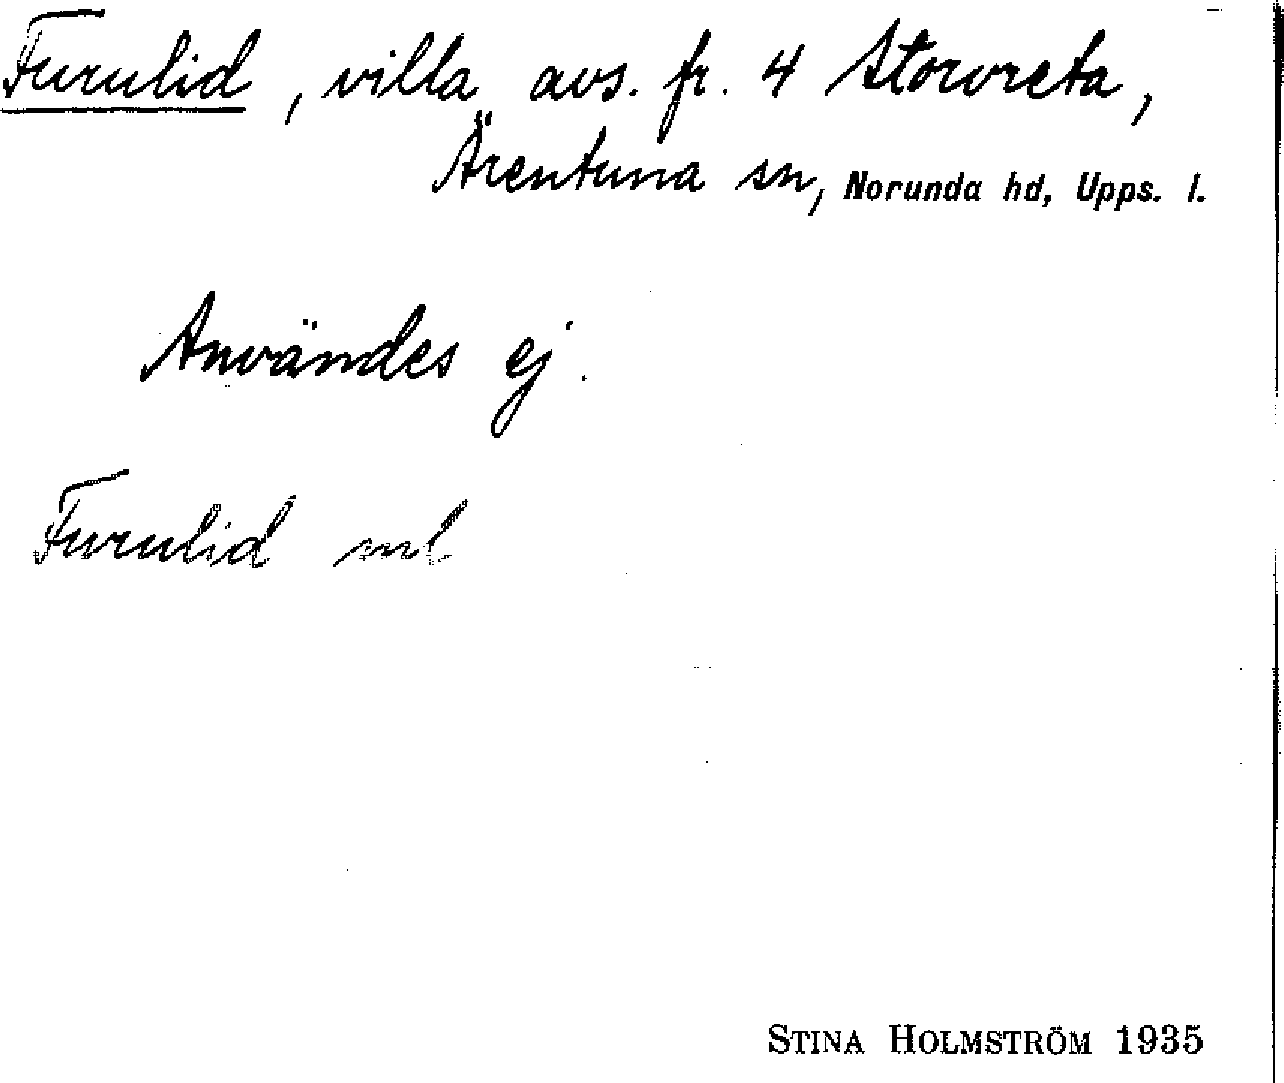 Furulid, villa avs. fr. 4 Storvreta,
Ärentuna sn, Norunda hd, Upps. l.
Användes ej.
Furulid ml
STINA HOLMSTRÖM 1935